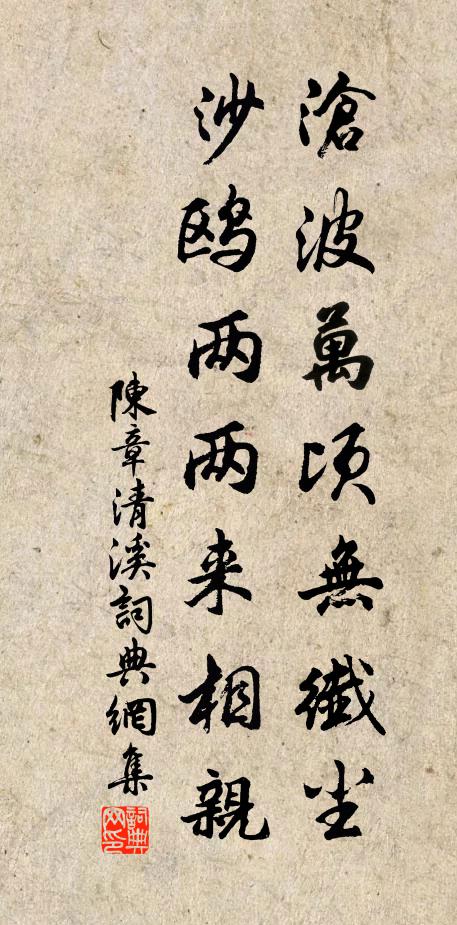 滄波萬頃無纖尘
沙鸥两两来相親
陳章清溪詞典網集
詞典網印